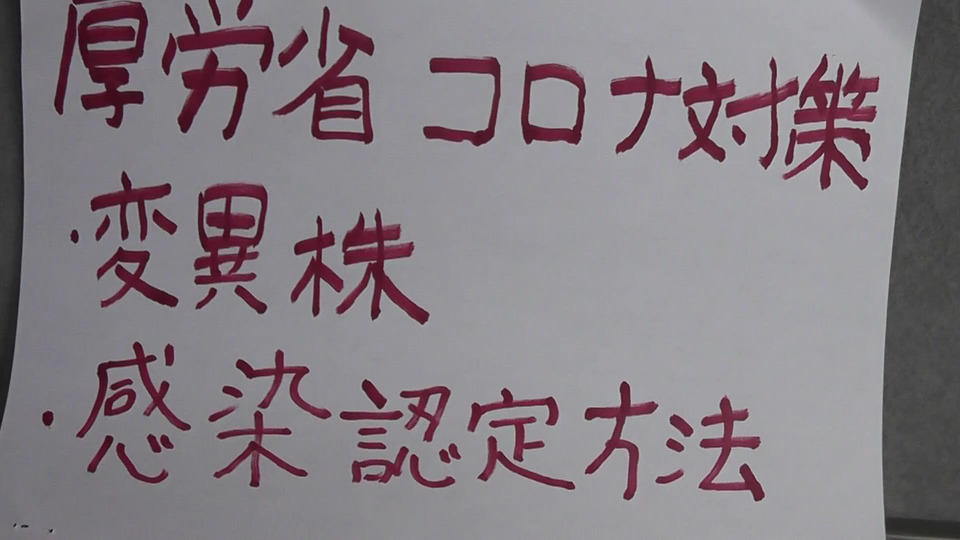 厚労省 コロナ対策
・変異株
・感染認定方法